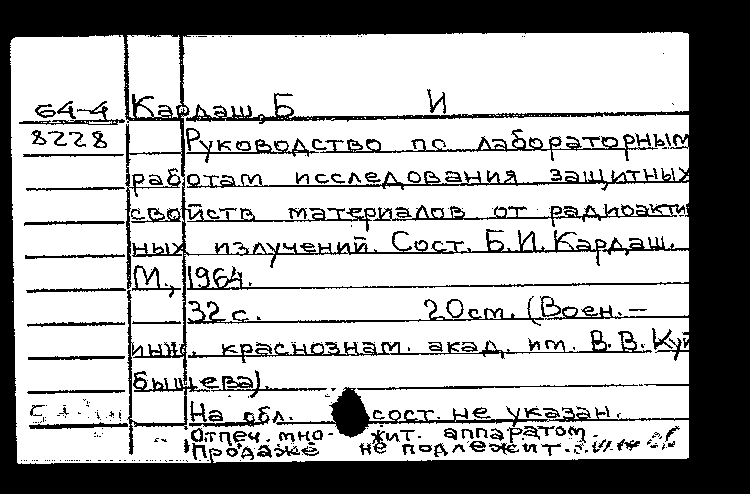 64-4 Кардаш, Б И
8228 Руководство по лабораторным
работам исследования защитных
свойств материалов от радиоактив
ных излучений. Сост. Б.И. Кардаш.
М., 1964.
32 с. 20 см. (Воен. —
инж. краснознам. акад. им. В. В. Куй
бышева).
На обл. сост. не указан.
Отпеч. множит. аппаратом.
Продаже не подлежит.